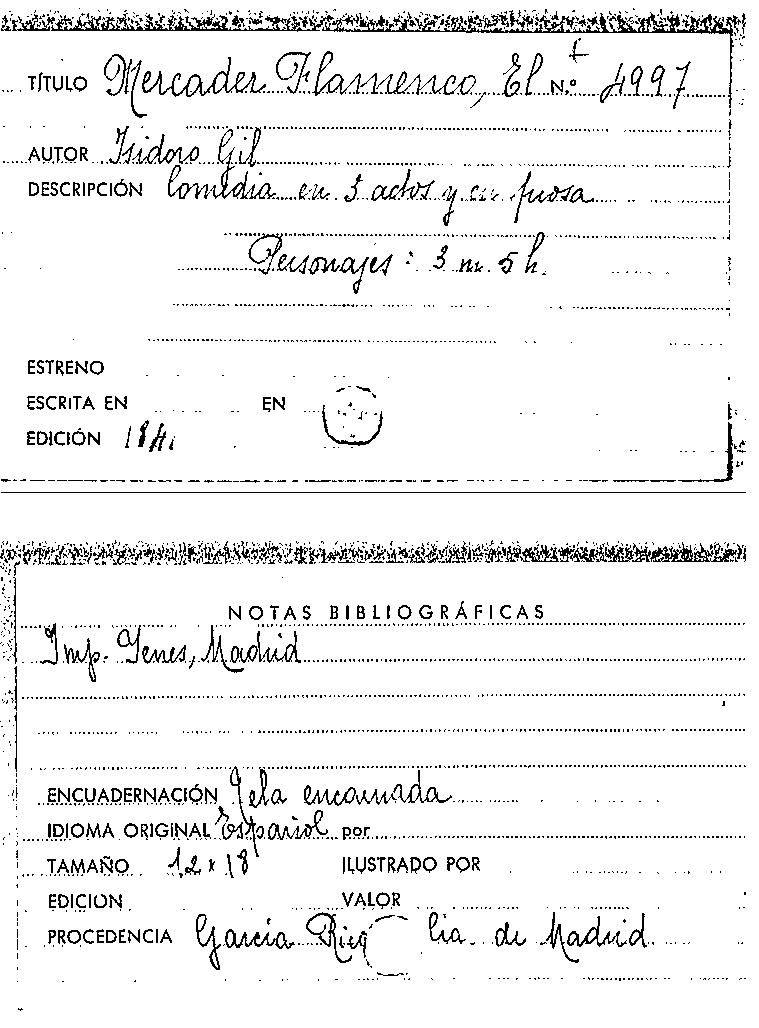 TÍTULO Mercader Flamenco, El N.º 4997
AUTOR Isidoro Gil
DESCRIPCIÓN Comedia en 3 actos y en prosa
Personajes: 3 m. 5 h.
ESTRENO
ESCRITA EN EN
EDICIÓN
NOTAS BIBLIOGRÁFICAS
Imp. Yenes, Madrid
ENCUADERNACIÓN Tela encarnada
IDIOMA ORIGINAL Español por
TAMAÑO 12 x 18 ILUSTRADO POR
EDICION VALOR
PROCEDENCIA García Cia. de Madrid